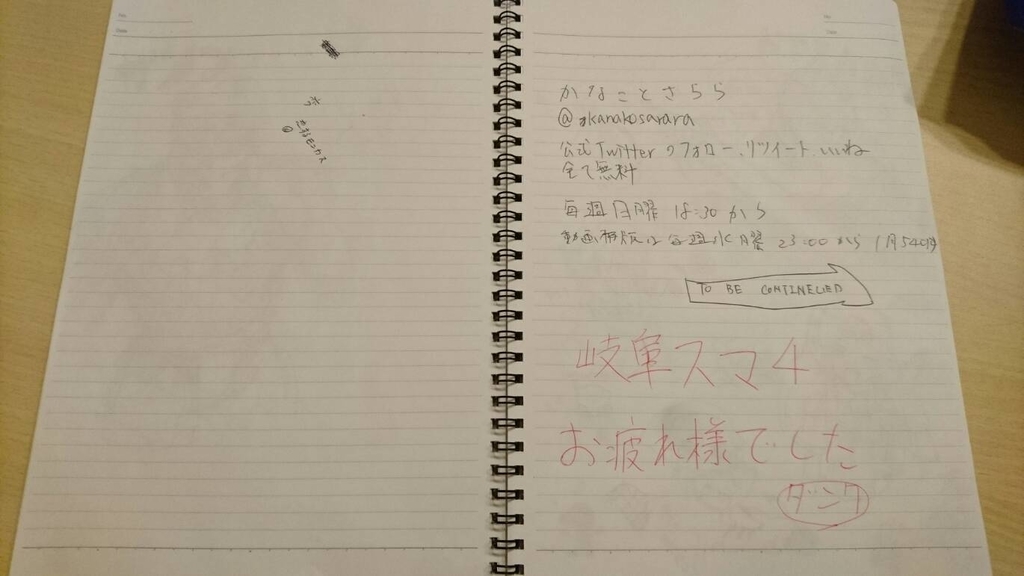 かなことさらら
@kanakosarara
公式Twitterのフォロー、リツイート、いいね
全て無料
毎週月曜 18:30から
動画版は毎週水曜 23:00から 1月540円
TO BE CONTINEUED
岐阜スマ4
お疲れ様でした
ダンク